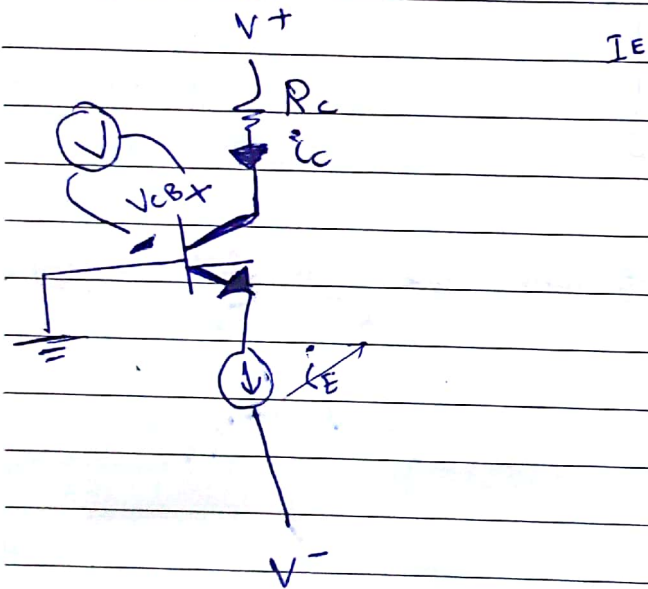 V+
IE
Rc
ic
V
VCB x
iE
V-